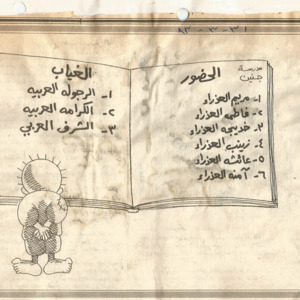 مدرسة
جنين
الحضور
١- مريم العذراء
٢- فاطمه العذراء
٣- خديجه العذراء
٤- زينب العذراء
٥- عائشه العذراء
٦- آمنه العذراء
الغياب
١- الرجوله العربيه
٢- الكرامه العربيه
٣- الشرف العربي